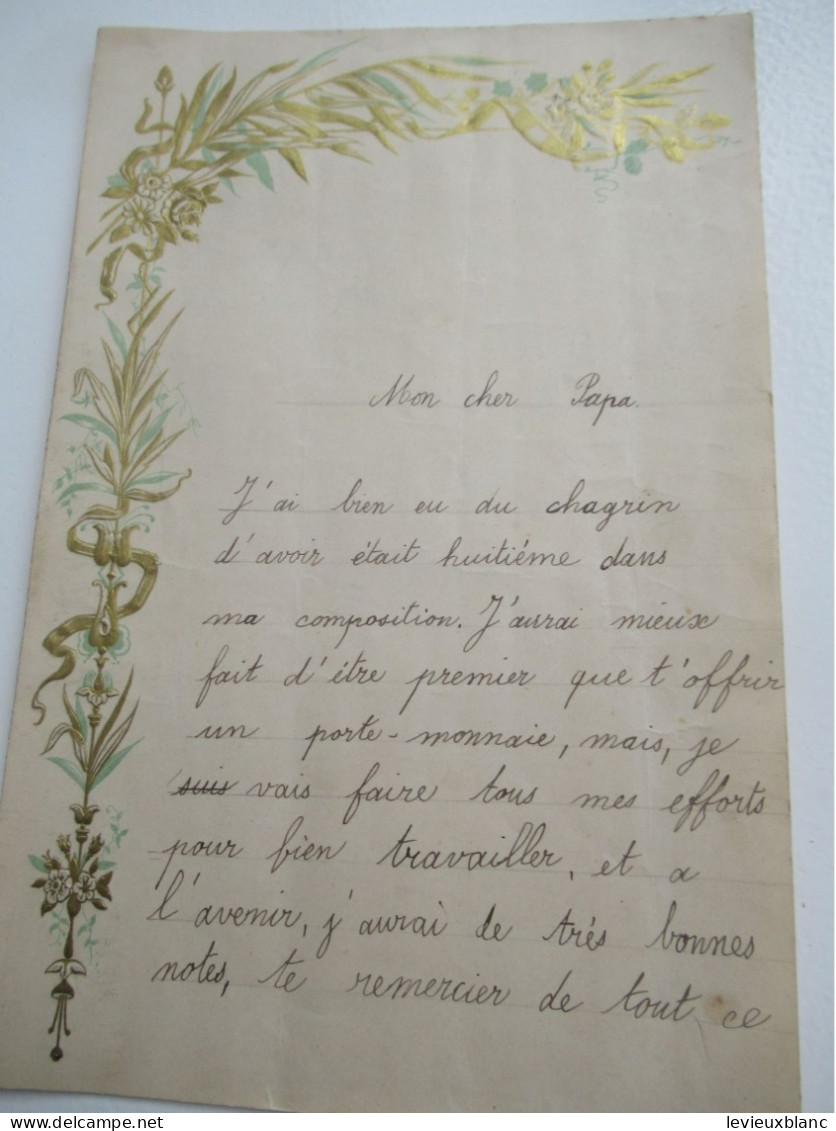 Mon cher Papa.
J'ai bien eu du chagrin
d'avoir était huitiéme dans
ma composition. J'aurai mieux
fait d'étre premier que t'offrir
un porte-monnaie, mais, je
suis vais faire tous mes efforts
pour bien travailler, et a
l'avenir, j'aurai de trés bonnes
notes, te remercier de tout ce
levieuxblanc